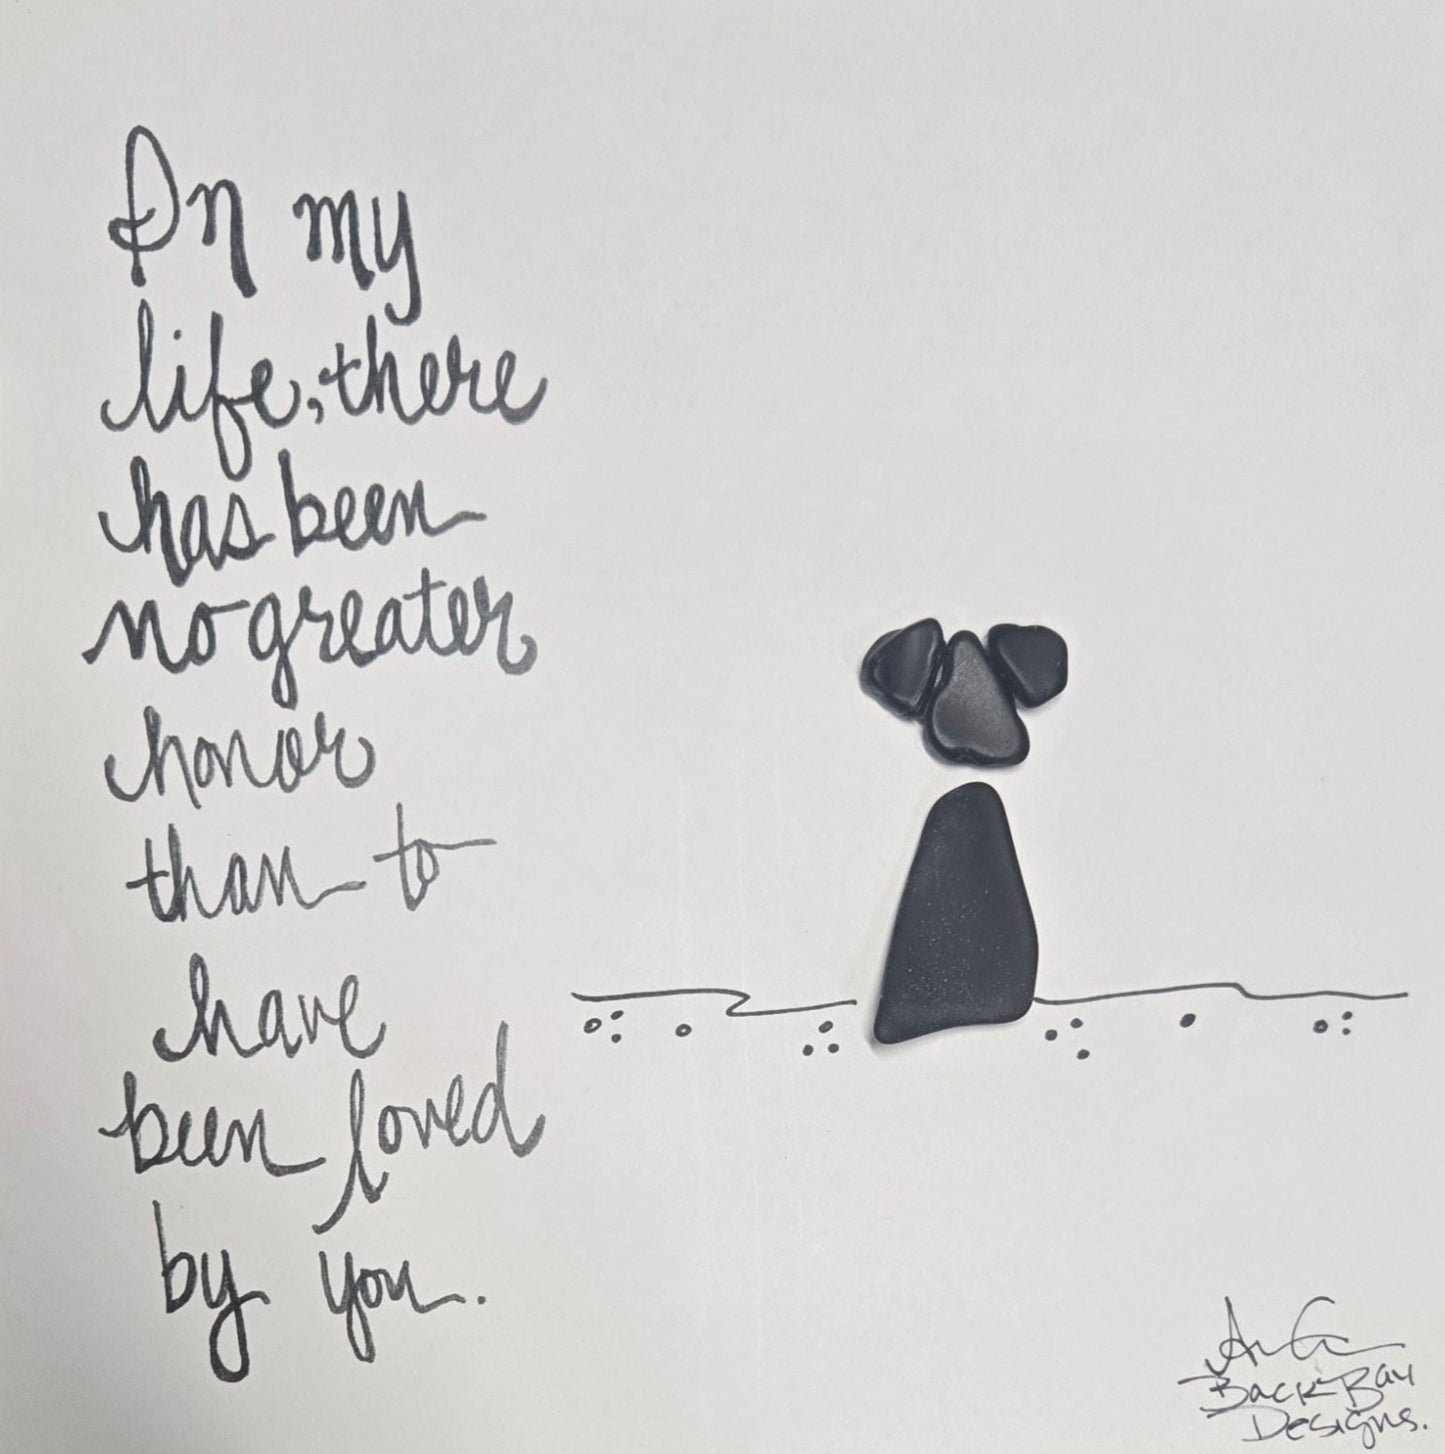 In my
life, there
has been
no greater
honor
than to
have
been loved
by you.
Back Bay
Designs.